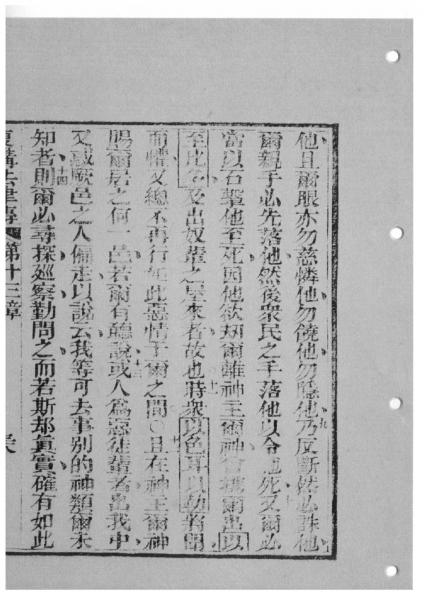 他且爾眼亦勿慈憐他勿饒他勿隱他乃反斷然必誅他
爾親手必先落他然後眾民之手落他以令他死又爾必
當以石擊他至死因他欲刼爾離神主爾神曾攜爾出以
至比多及出奴輩之屋來者故也時眾以色耳以勒將聞
而懼又總不再行如此惡情于爾之間○且在神主爾神
賜爾居之何一邑若爾有聽說或人為惡徒輩者出我中
又惑厥邑之人偏走以說云我等可去事別的神類爾未
知者則爾必尋探廵察勤問之而若斯却真實確有如此
復講法律傳 第十三章